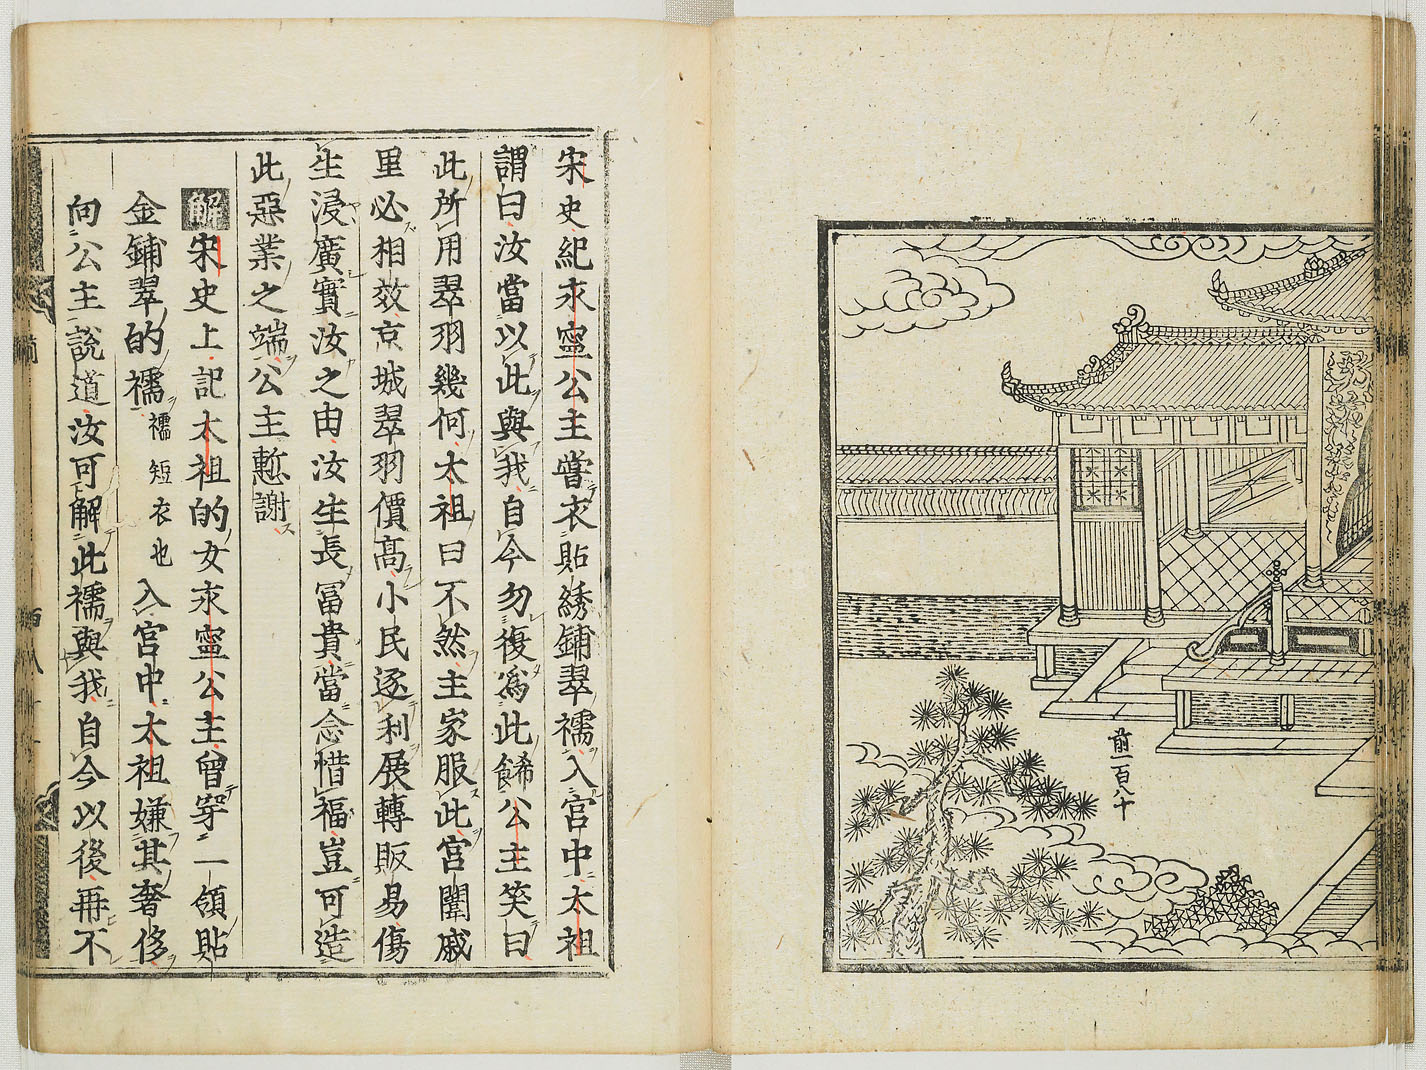 前一百八十
宋史紀永寧公主嘗衣貼綉鋪翠襦入宮中太祖
謂曰汝當以此與我自今勿復爲此餙公主笑曰
此所用翠羽幾何太祖曰不然主家服此宮闈戚
里必相效京城翠羽價高小民逐利展轉販易傷
生浸廣實汝之由汝生長冨貴當念惜福豈可造
此惡業之端公主慙謝
解宋史上記太祖的女永寧公主曾穿一領貼
金鋪翠的襦襦短衣也入宮中太祖嫌其奢侈
向公主說道汝可解此襦與我自今以後再不